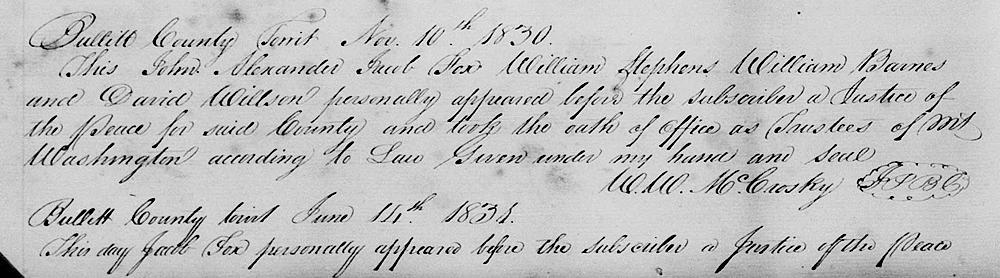 Bullitt County Torit Nov. 10th. 1830.
This John Alexander Jacob Fox William Stephens William Barnes
and David Willson personally appeared before the subscriber a Justice of
the Peace for said County and took the oath of office as Trustees of Mt
Washington according to Law Given under my hand and seal
W.W. McCrosky JPBC
Bullitt County torit June 14th. 1831.
This day Jacob Fox personally appeared before the subscriber a Justice of the Peace